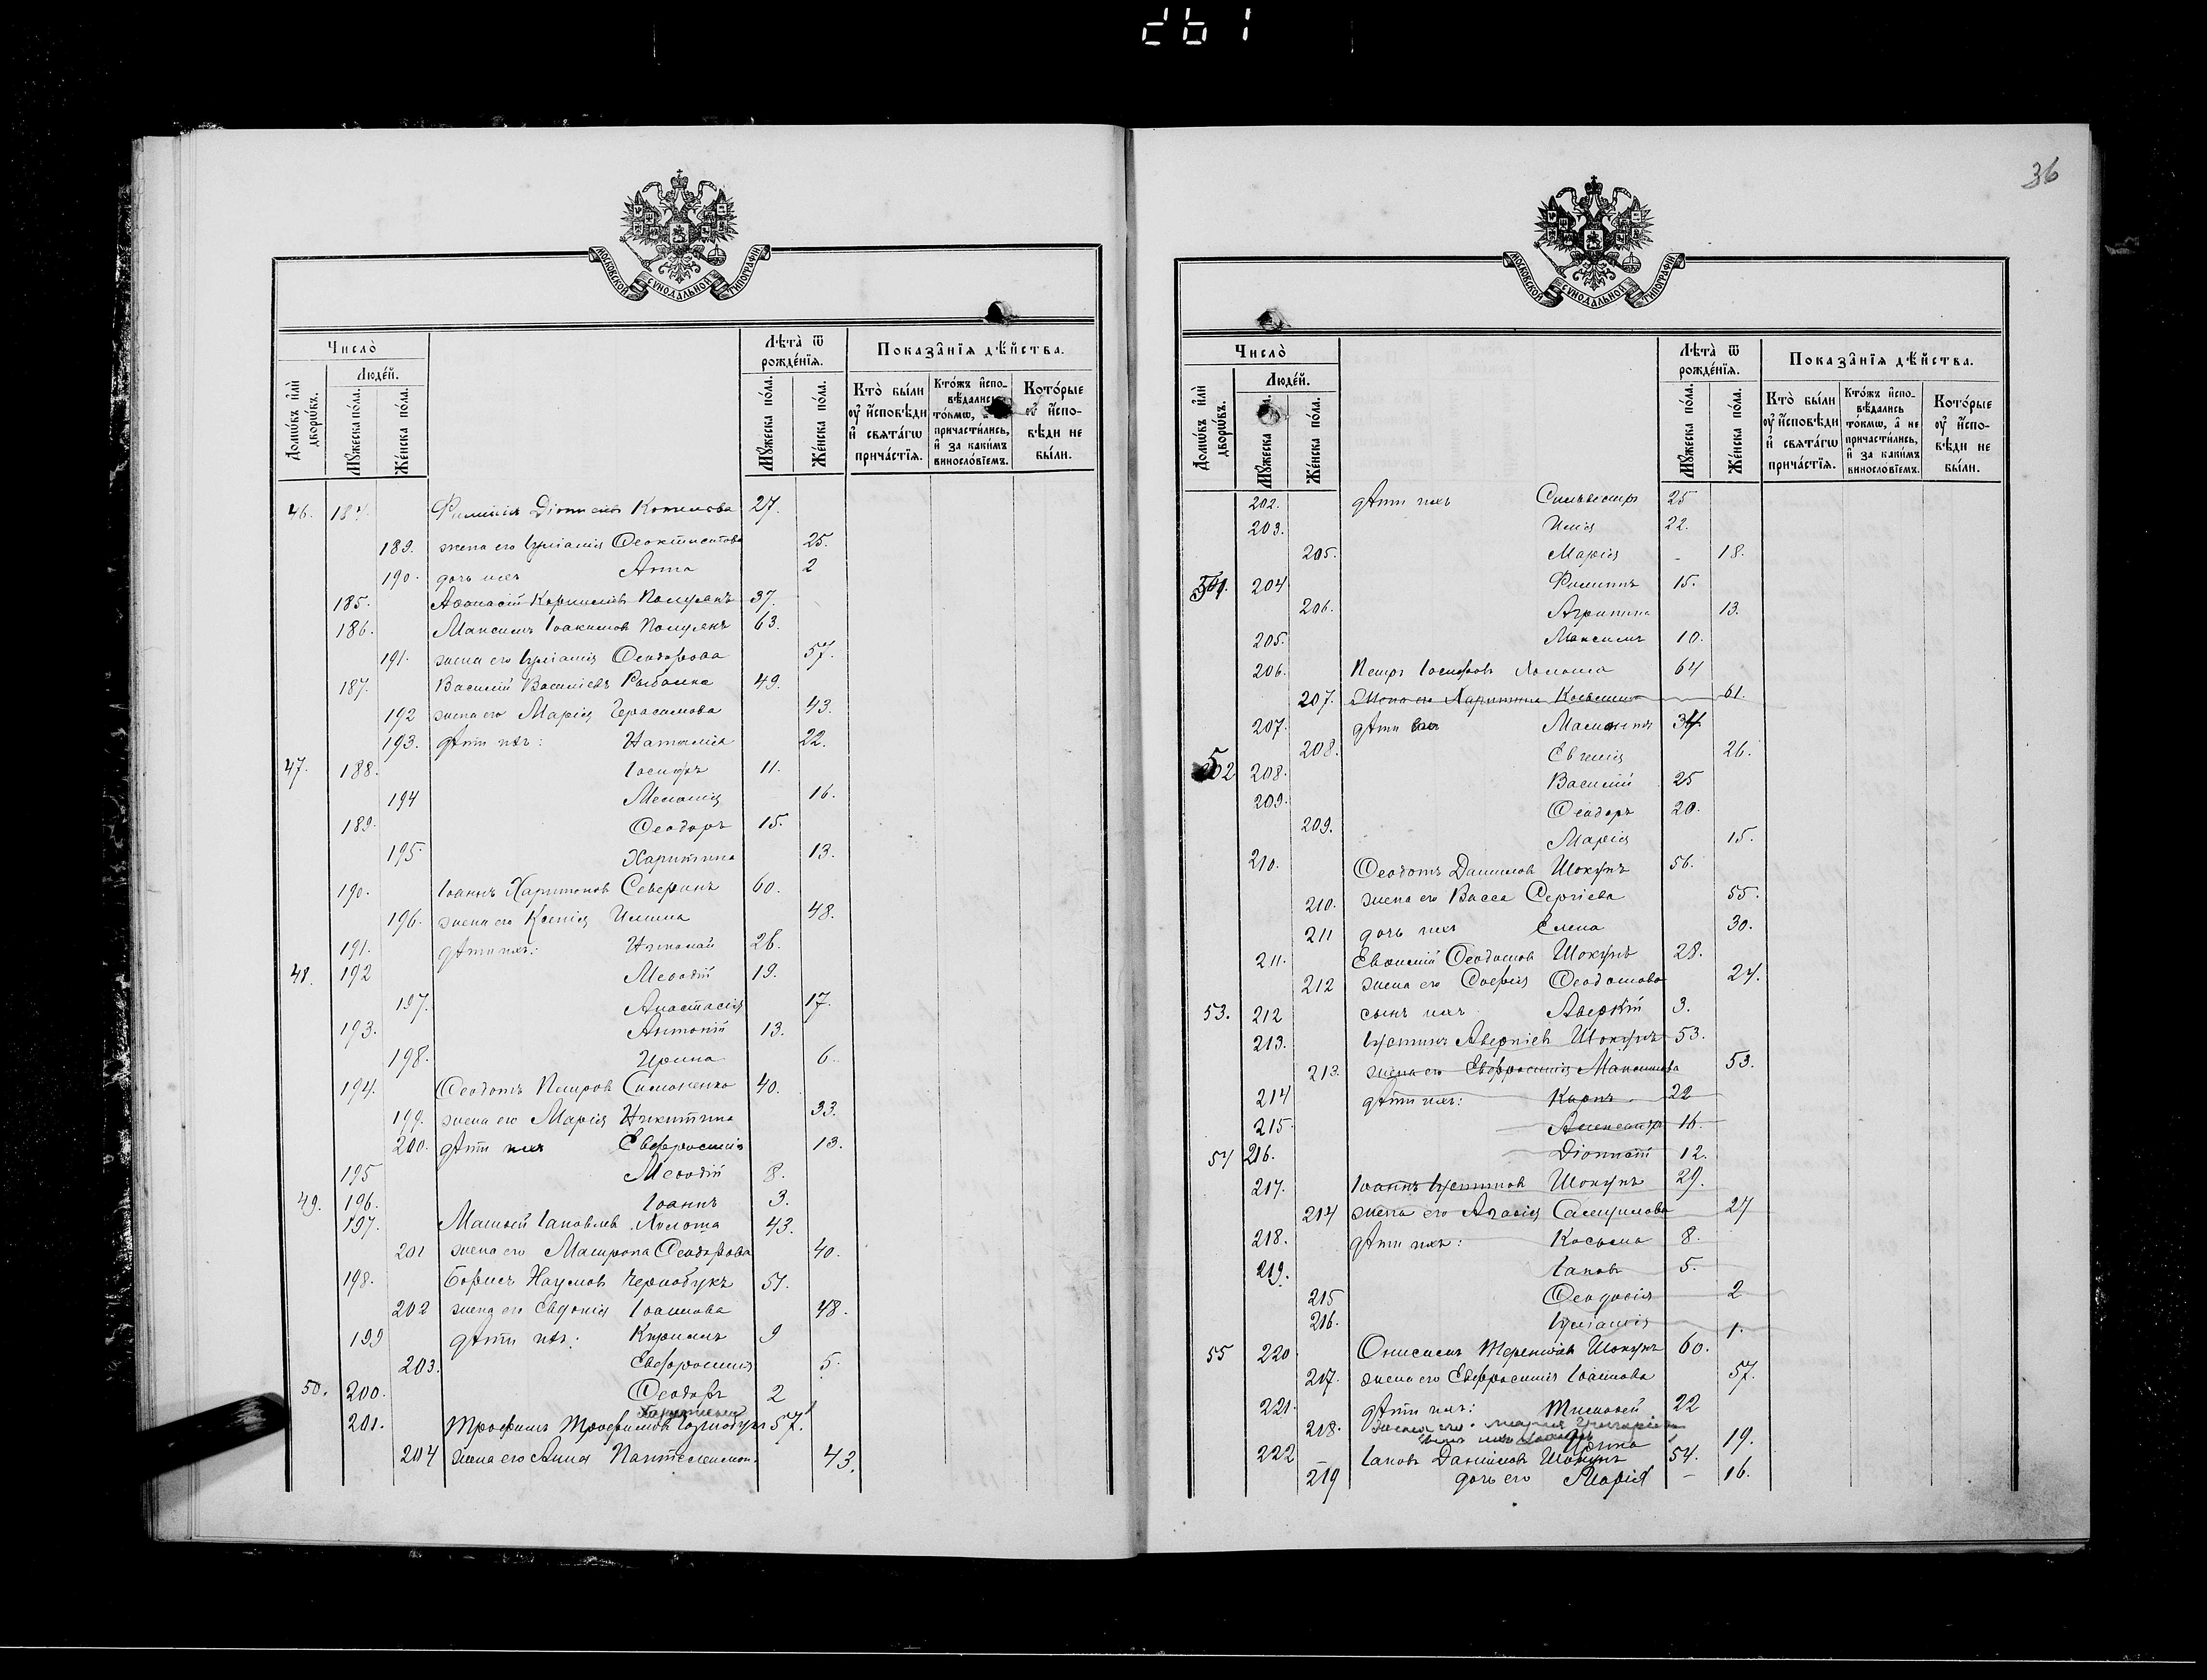 36
МОСКОВСКОЙ СУНОДАЛЬНОЙ ТИПОГРАФІИ
Число̀
Домѡ́въ и҆лѝ дворѡ́въ.
Люде́й.
Мꙋ́жеска по́ла.
Же́нска по́ла.
Лѣ́та ѿ рожде́нїѧ.
Мꙋ́жеска по́ла.
Же́нска по́ла.
Показа̑нїѧ дѣ́йства.
Кто̀ бы́ли ᲂу҆ и҆́сповѣди и҆ свѧта́гѡ прича́стїѧ.
Кто́жъ и҆спо-вѣ́дались то́кмѡ, причасти́лись, и҆ за каки́мъ винослѡ́вїемъ.
Кото́рые ᲂу҆ и҆́спо-вѣди не бы́ли.
46. 184. Филиппъ Діонисіевъ 27.
189. жена его Іуліанія Ѳеоктистова 25.
190. дочь ихъ Анна 2
185. Аѳанасій Корниліевъ Полулехъ 37.
186. Максимъ Іоакимовъ Полулехъ 63.
191. жена его Іуліанія Ѳеодорова 57.
187. Василій Василіевъ Рыбалка 49.
192 жена его Марія Герасимова 43.
193. дѣти ихъ: Наталія 22.
47. 188. Іосифъ 11.
194 Меланія 16.
189. Ѳеодоръ 15.
195 Харитина 13.
190. Іоаннъ Харитоновъ Северинъ 60.
196. жена его Ксенія Ильина 48.
191. дѣти ихъ: Николай 26.
48. 192 Меѳодій 19.
197. Анастасія 17.
193. Антоній 13.
198. Ирина 6.
194. Ѳеодотъ Петровъ Симоненко 40.
199. жена его Марія Никитина 33.
200. дѣти ихъ Евфросинія 13.
195 Меѳодій 8.
49. 196. Іоаннъ 3.
197. Матвей Іаковлевъ Холоша 43.
201 жена его Матрона Ѳеодорова 40.
198. Борисъ Наумовъ Чернобукъ 51.
202 жена его Евдокія Іоаннова 48.
199 дѣти ихъ: Кириллъ 9
203. Евфросинія 5.
50. 200. Ѳеодоръ 2
201. Трофимъ Трофимовъ 57.
204 жена его Анна Пантелеимон. 43.
МОСКОВСКОЙ СУНОДАЛЬНОЙ ТИПОГРАФІИ
Число̀
Домѡ́въ и҆лѝ дворѡ́въ.
Люде́й.
Мꙋ́жеска
Же́нска по́ла.
Лѣ́та ѿ рожде́нїѧ.
Мꙋ́жеска по́ла.
Же́нска по́ла.
Показа̑нїѧ дѣ́йства.
Кто̀ бы́ли ᲂу҆ и҆́сповѣди и҆ свѧта́гѡ прича́стїѧ.
Кто́жъ и҆спо-вѣ́дались то́кмѡ, а҆ не причасти́лись, и҆ за каки́мъ винослѡ́вїемъ.
Кото́рые ᲂу҆ и҆́спо-вѣди не бы́ли.
202. дѣти ихъ Сильвестръ 25
203. Илія 22.
205. Марія - 18.
51. 204 Филиппъ 15.
206. Агрипина 13.
205. Максимъ 10.
206. Петръ Іосифовъ Холоша 64
207. Жена его Харитина Косьмина 61.
207. дѣти 34
208. Евгенія 26.
52 208. Василій 25
209. Ѳеодоръ 20.
209. Марія 15.
210. Ѳеодотъ Даниловъ Шокунъ 56.
210. жена его Васса Сергіева 55.
211 дочь ихъ Елена 30.
211. Евѳимій Ѳеодотовъ Шокунъ 28.
212 жена его Софія Ѳеодотова 24.
53. 212 сынъ ихъ Аверкій 3.
213. Іустинъ Аверкіевъ Шокунъ 53.
213. жена его Евфросинія Максимова 53.
214 дѣти ихъ: Карпъ 22
215. Александръ 16.
54 216. Діонисій 12.
217. Іоаннъ Іустиновъ Шокунъ 29.
214 жена его Агаѳія Самуилова 27
218. дѣти ихъ: Косьма 8.
219. Іаковъ 5.
215 Ѳеодосія 2
216. Іуліанія 1.
55 220 Онисимъ Терентіевъ Шокунъ 60.
217. жена его Евфросинія Іоаннова 57.
221. дѣти ихъ: Тимоѳей 22
218. жена его Марія
Ирина 19.
222 Іаковъ Даниловъ Шокунъ 54.
219 дочь его Марія - 16.